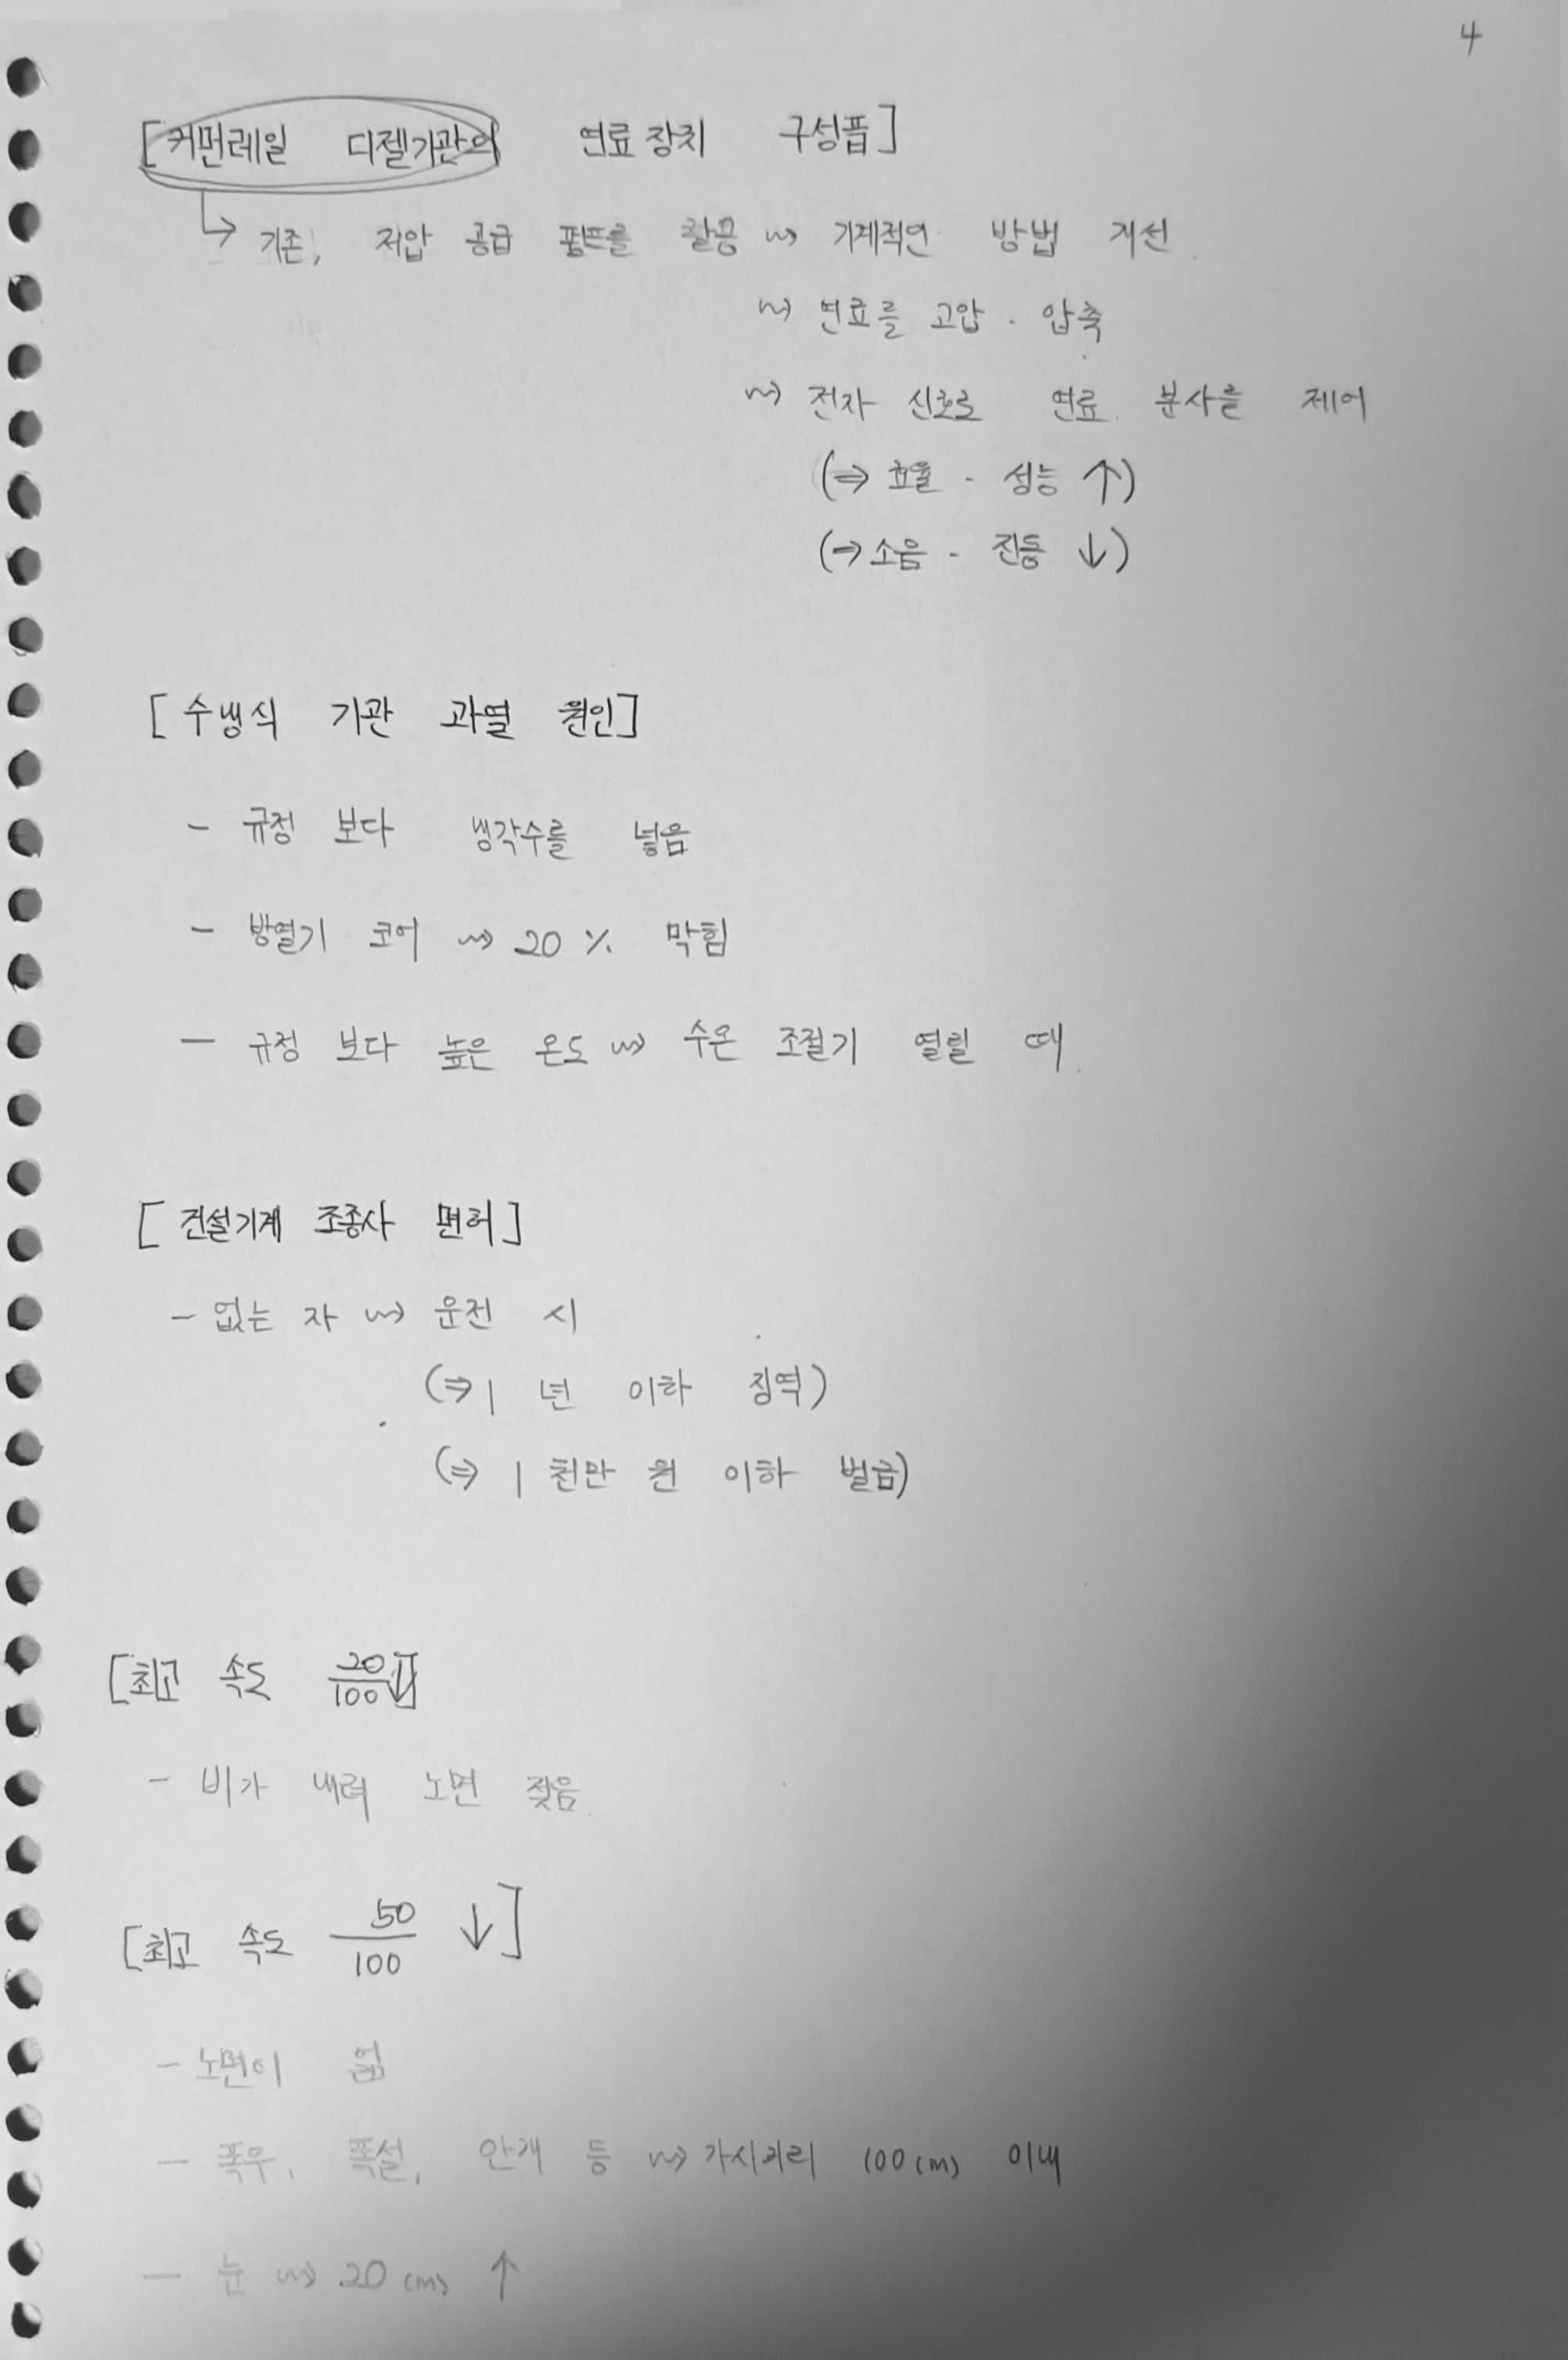 4
[커먼레일 디젤기관의 연료장치 구성품]
↳ 기존, 저압 공급 펌프를 활용 ⇝ 기계적인 방법 개선
⇝ 연료를 고압 · 압축
⇝ 전자 신호로 연료 분사를 제어
(⇒ 효율 - 성능 ↑)
(⇒ 소음 - 진동 ↓)
[수냉식 기관 과열 원인]
- 규정 보다 냉각수를 넣음
- 방열기 코어 ⇝ 20% 막힘
- 규정 보다 높은 온도 ⇝ 수온 조절기 열릴 때
[건설기계 조종사 면허]
- 없는 자 ⇝ 운전 시
(⇒ 1 년 이하 징역)
(⇒ 1 천만 원 이하 벌금)
[최고 속도 20/100 ↓]
- 비가 내려 노면 젖음
[최고 속도 50/100 ↓]
- 노면이 얾
- 폭우, 폭설, 안개 등 ⇝ 가시거리 100(m) 이내
- 눈 ⇝ 20(m) ↑